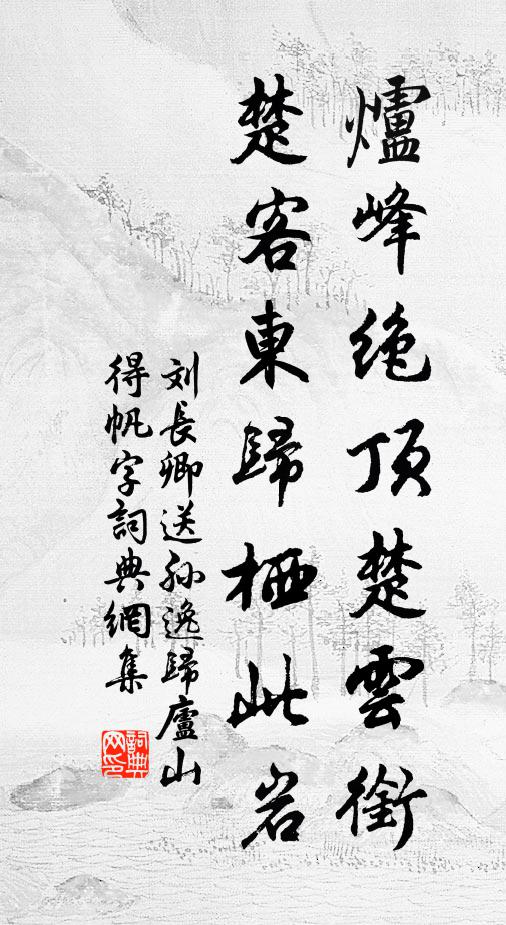 爐峰绝顶楚雲銜
楚客東歸栖此岩
刘長卿送孙逸歸廬山
得帆字詞典網集
詞典网